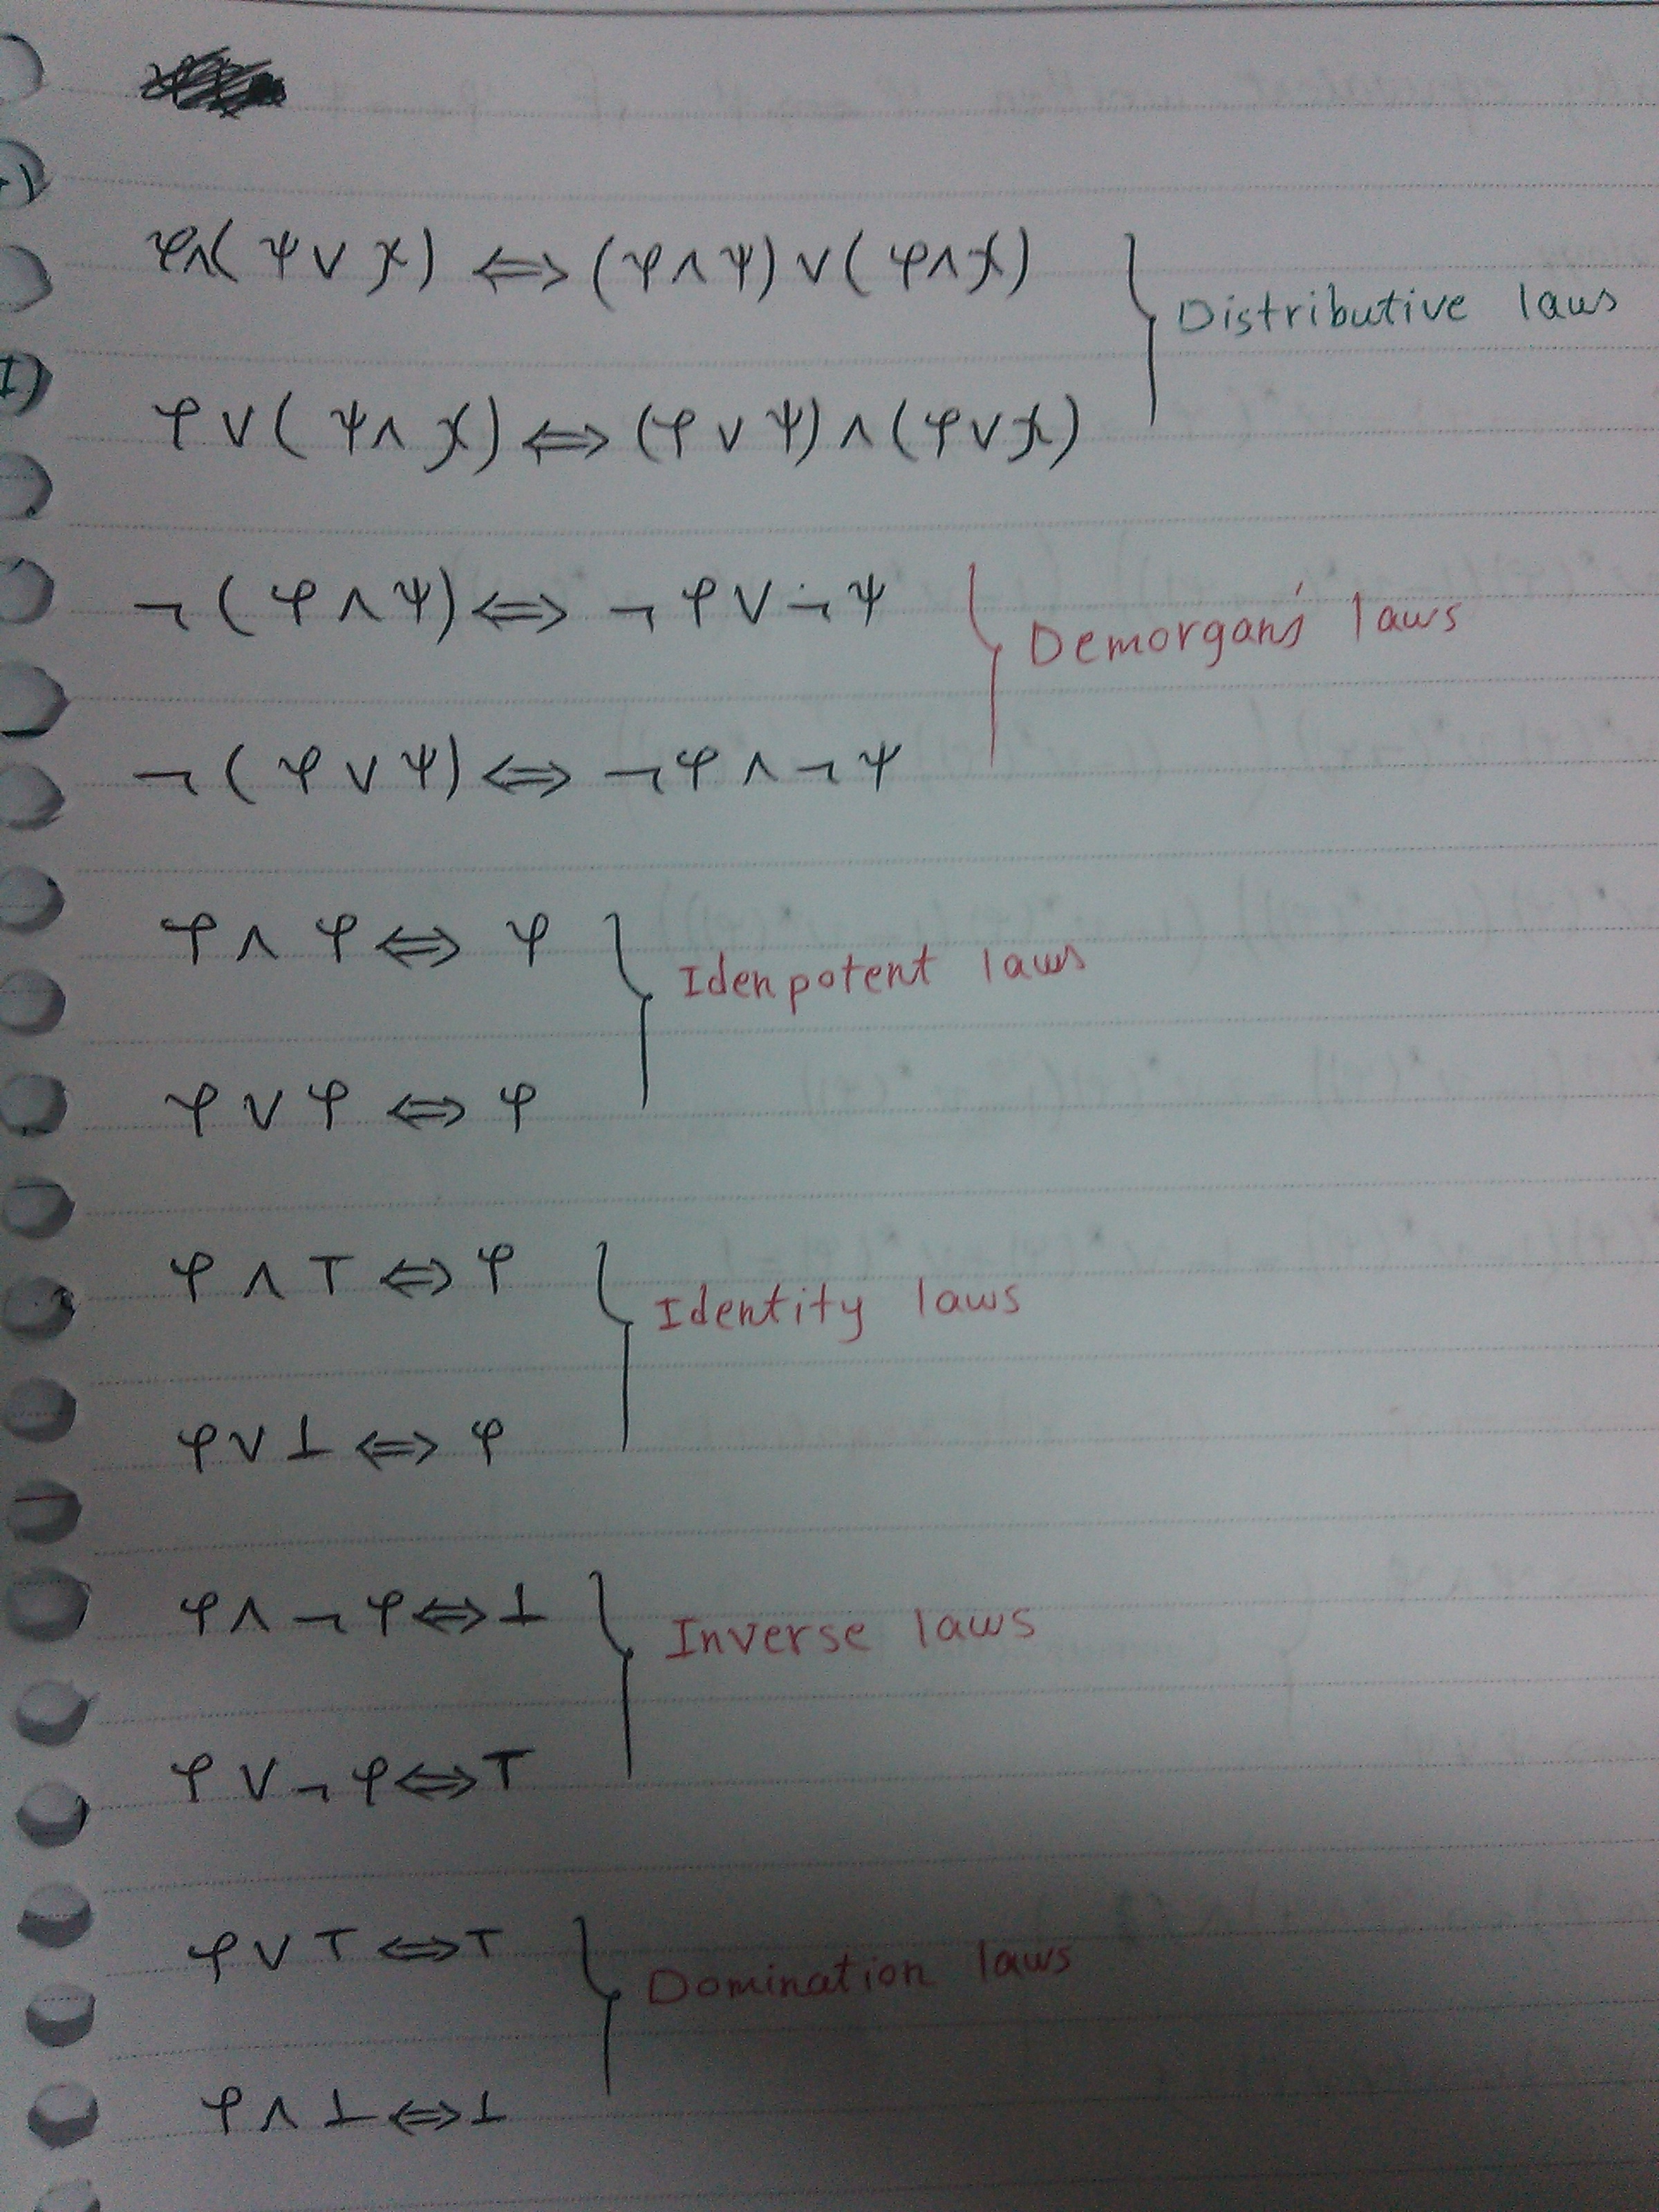 φ∧(ψ∨χ) ⇔ (φ∧ψ)∨(φ∧χ)
Distributive laws
φ∨(ψ∧χ) ⇔ (φ∨ψ)∧(φ∨χ)
¬(φ∧ψ) ⇔ ¬φ∨¬ψ
Demorgans' laws
¬(φ∨ψ) ⇔ ¬φ∧¬ψ
φ∧φ ⇔ φ
Idenpotent laws
φ∨φ ⇔ φ
φ∧⊤ ⇔ φ
Identity laws
φ∨⊥ ⇔ φ
φ∧¬φ ⇔ ⊥
Inverse laws
φ∨¬φ ⇔ ⊤
φ∨⊤ ⇔ ⊤
Domination laws
φ∧⊥ ⇔ ⊥